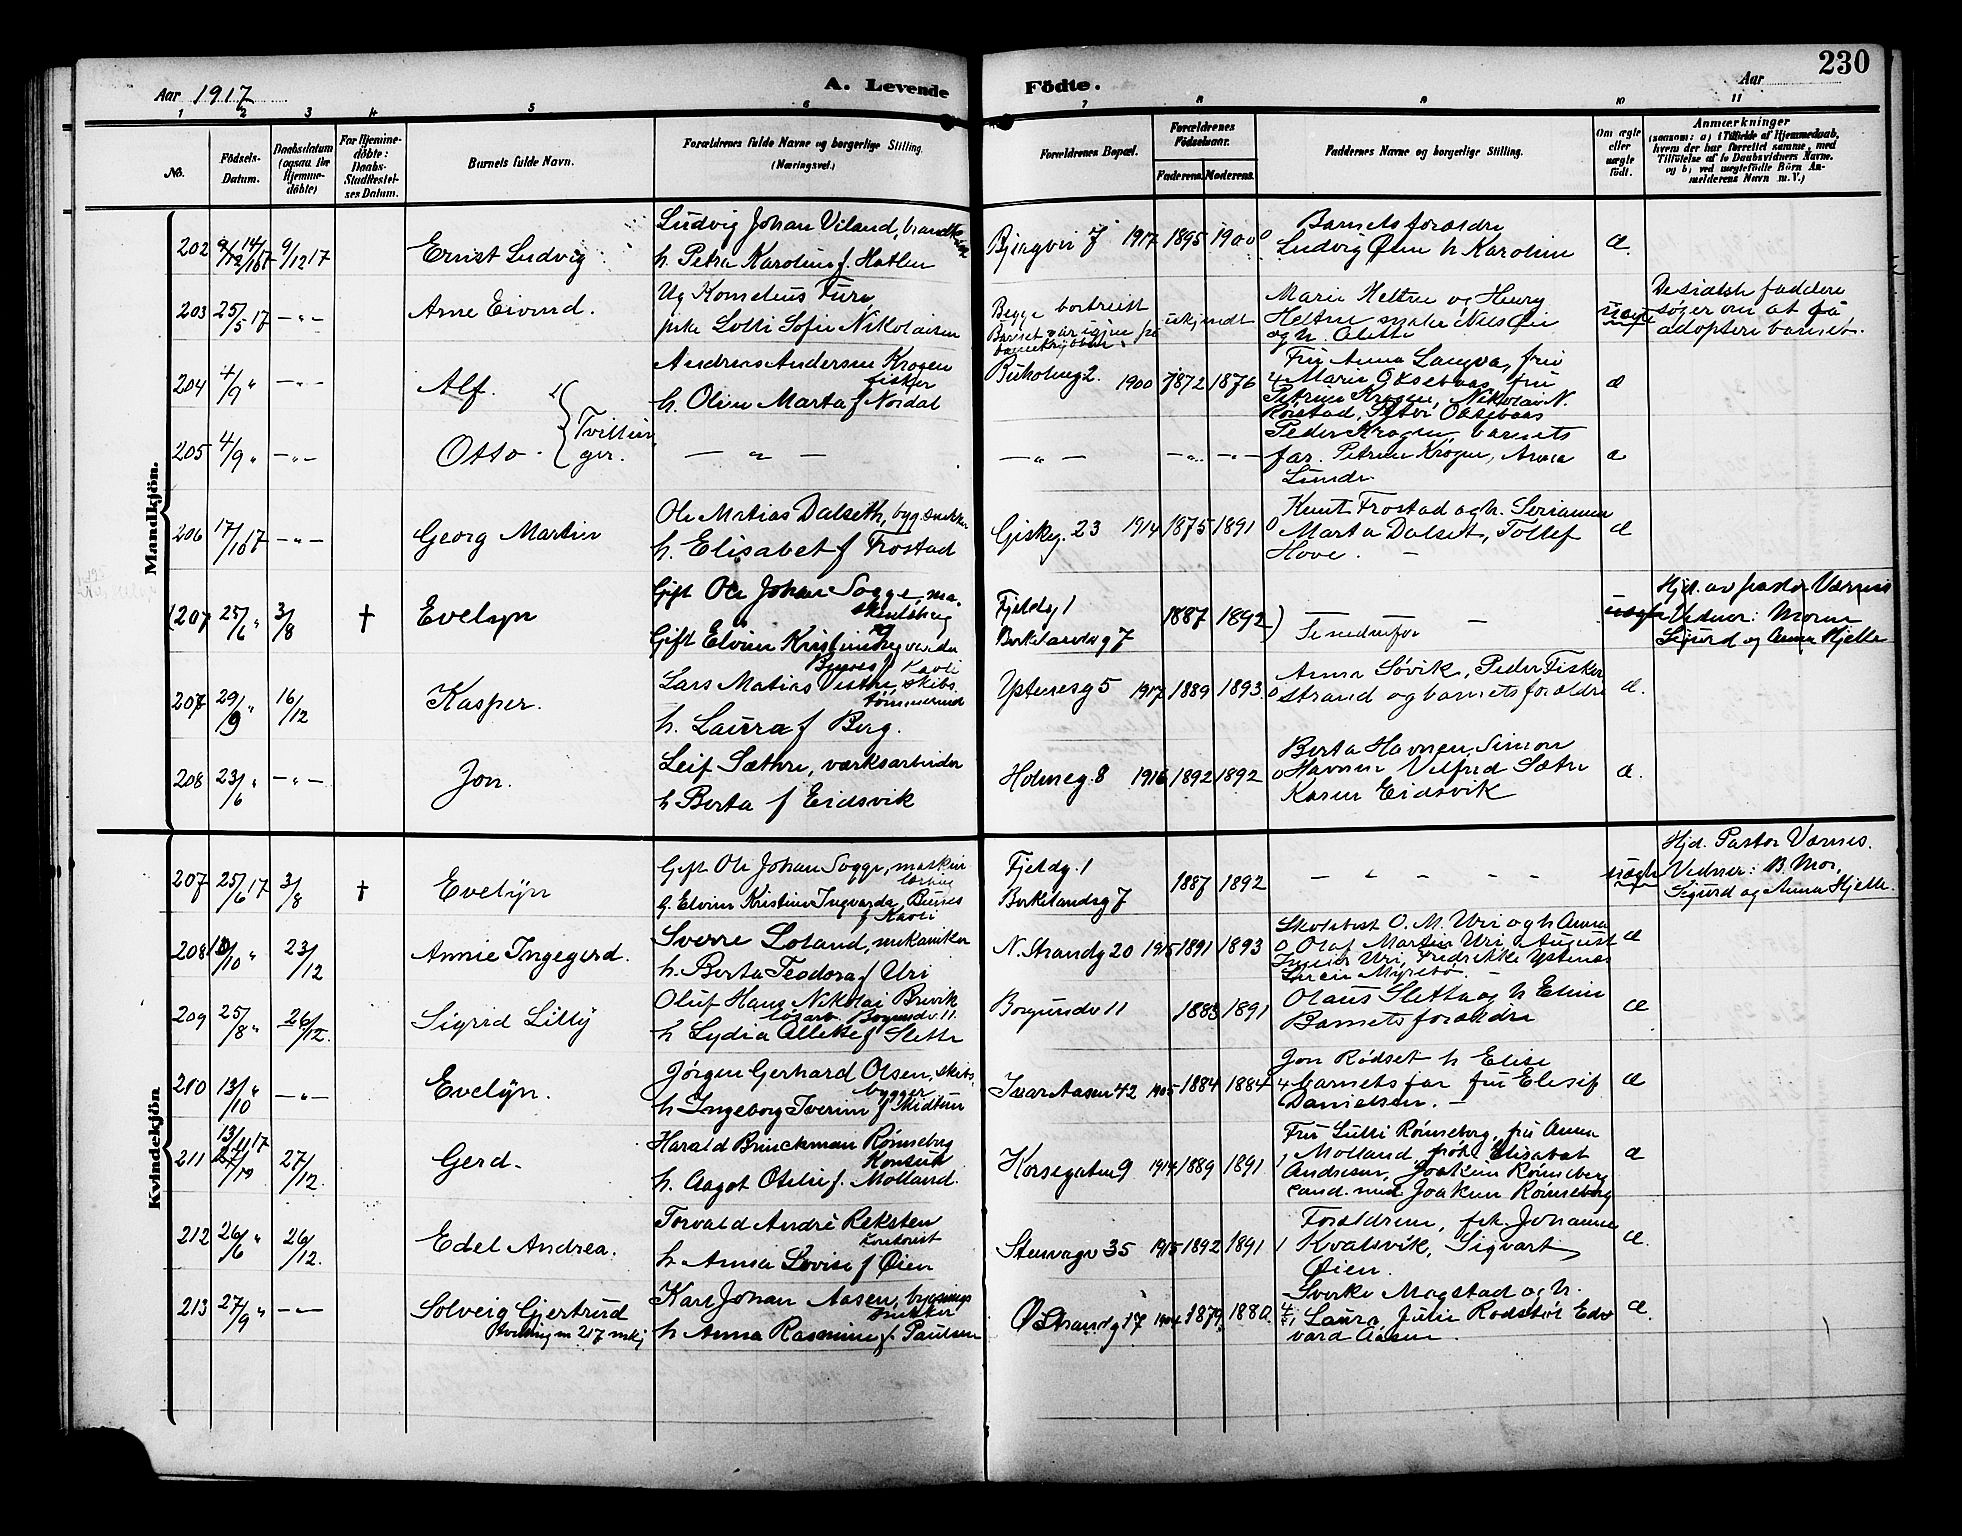 230
Aar 1917
A. Levende
Födte.
Aar
1 2 3 4 5 6 7 8 9 10 11
No.
Födsels-
Datum.
Daabsdatum
(ogsaa for
Hjemme-
döbte)
For Hjemme-
döbte:
Daabs-
Stadfæstel-
ses Datum.
Barnets fulde Navn.
Forældrenes fulde Navne og borgerlige Stilling.
(Næringsvei.)
Forældrenes Bopæl.
Forældrenes
Fødselsaar.
Faderens.
Moderens.
Faddernes Navne og borgerlige Stilling.
Om ægte
eller
uægte
født.
Anmærkninger
(saasom: a) i Tilfælde af Hjemmedaab,
hvem der har forrettet samme, med
Tilføielse af to Daabsvidners Navne.
og b) ved uægtefødte Börn An-
melderens Navn m. V.)
Mandkjön.
202 14/10 17 9/12 17 Ernst Ludvig
Ludvig Johan Viland,
h. Petra Karoline f. Hatlen
7 1917 1895 1900 0
Barnets forældre
Ludvig Øien h Karoline
æ.
203 25/5 17 -"- Arne Eivind.
Ug Kornelius Fure,
pike Lotti Sofie Nikolaisen
Begge bortreist
ukjendt
Marie Heltne og Henry
Heltne Nils Øie
og h. Alette
uægte
De sidste faddere
søger om at få
adoptere barnet.
204 4/9 " -"- Alf.
Andreas Andersen Krogen
fisker
h. Oline Marta f Nordal
Buholmg 2. 1900 1872 1876 4
Fru Anna Langva, fru
Marie Oksebaas, fru
Petrine Krogen, Nikolai N.
Rørstad, Petter Oksebaas
æ
205 4/9 " -"- Otto.
Tvillin
ger.
- " -
-"- -"- -"-
Peder Krogen, barnets
far. Petrine Krogen, Anna
Lunde
æ
206 17/10 17 -"- Georg Martin
Ole Matias Dalseth, byg.snekker
h. Elisabet f Frostad
Giskeg. 23 1914 1875 1891 0
Knut Frostad og h. Serianna
Marta Dalset, Tollef
Hove. -
æ
(207 25/6 " 3/8 † Evelyn
Gift Ole Johan Sogge, ma-
skinlærling
Gift Elvine Kristine Ingvarda
Bunes f Kavli
Fjeldg 1
Birkelandsg 7
1887 1892 )
Se nedenfor
uægte
Hjd. av pastor Værnes
Vidner: Moren
Sigurd og Anna Hjelle
207 29/9 " 16/12 Kasper.
Lars Matias Vestre, skibs-
tømmermand
h. Laura f Berg.
Ystenesg 5 1917 1889 1893 0
Anna Søvik, Peder Fisker
strand og barnets forældre
æ.
208 23/6 " -"- Jon.
Leif Sæthre, værksarbeider
h Berta f Eidsvik
Holmeg. 8 1916 1892 1892 0
Berta Havnen, Simon
Havnen Vilfred Sætre
Karen Eidsvik
æ.
Kvindekjön
207 25/6 17 3/8 † Evelyn
Gift Ole Johan Sogge, maskin
lærling
g. Elvine Kristine Ingvarda Bunes
f Kavli
Fjeldg. 1
Birkelandsg 7
1887 1892
- " - - -
uægte
Hjd. Pastor Værnes.
Vidner: B. Mor,
Sigurd og Anna Hjelle.
208 /10 " 23/12 Annie Ingegerd.
Sverre Loland, mekaniker
h. Berta Teodora f Uri
N. Strandg 20 1915 1891 1893 0
Skolebest O. M. Uri og h Anna
Olaf Martin Uri, August
Ingvar Uri, Fredrikke Ystenæs
Myrebø. -
æ
209 25/8 " 26/12. Sigrid Lilly
Oluf Hans Nikolai Brevik
løsarb Borgundv 11.
h Lydia Allette f Slette
Borgundv 11 1883 1891
Olaus Sletta og h Eline
Barnets forældre
æ
210 13/10 " -"- Evelyn.
Jørgen Gerhard Olsen, skibs-
bygger
h Ingeborg Iverine f Midtun
Ivar Aasen 42 1905 1884 1884 4
Jon Rødset h Elise
barnets far fru Elisif
Danielsen. -
æ
211 13/11 17 27/12. Gerd.
Harald Brinckman Rønneberg
Konsul
h. Aagot Otilie f. Molland.
Korsegaten 9 1914 1889 1891 1
Fru Lulli Rønneberg, fru Anna
Molland frøk Elisabet
Andresen, Joakim Rønneberg
cand. med Joakim Rønneberg
æ
212 26/6 " 26/12. Edel Andrea.
Torvald André Reksten
kontorist
h Anna Lovise f Øien
Stenvagv 35 1915 1892 1891 1
Forældrene, frk. Johanne
Kvalsvik, Sigvart
Øien.
æ.
213 27/9 " -"- Solveig Gjertrud
tvilling m 217 mkj
Karl Johan Aasen, bygnings
snekker
h Anna Rasmine f. Paulsen
Ø Strandg 17 1904 1879 1880. 4/1
Sverke Magstad og h.
Laura, Julie Rødstøl Ed-
vard Aasen.
æ.